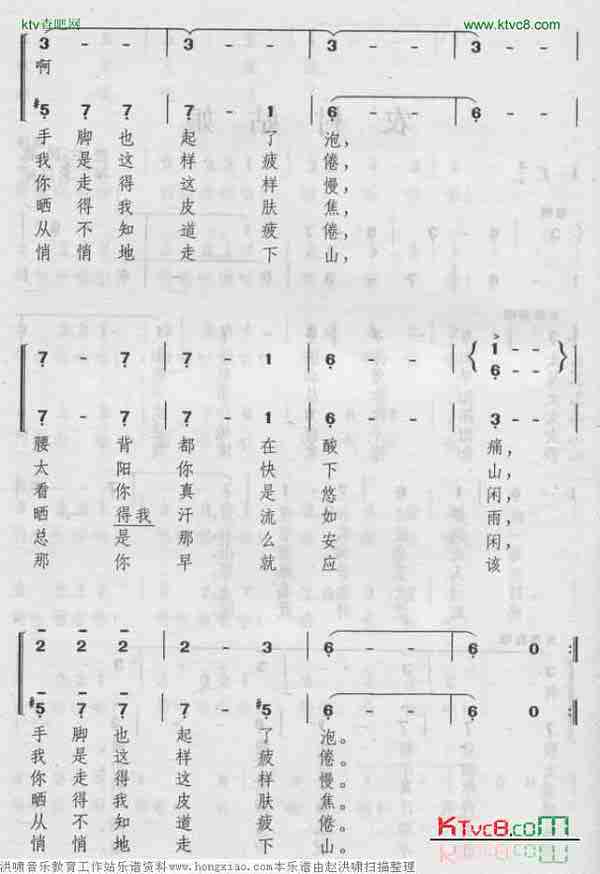 ktv查吧网
www.ktvc8.com
3 - - | 3 - - | 3 - - | 3 - - | 3 - -
啊
#5 7 7 | 7 - 1 | 6 - - | 6 - -
手 脚 也 起 了 泡，
我 是 这 样 疲 倦，
你 走 得 这 样 慢，
晒 得 我 皮 肤 焦，
从 不 知 道 疲 倦，
悄 悄 地 走 下 山，
7 - 7 | 7 - 1 | 6 - - | 1 - -
6 - -
7 - 7 | 7 - 1 | 6 - - | 3 - -
腰 背 都 在 酸 痛，
太 阳 你 快 下 山，
看 你 真 是 悠 闲，
晒 得我 汗 流 如 雨，
总 是 那 么 安 闲，
那 你 早 就 应 该
2 2 2 | 2 - 3 | 6 - - | 6 0
#5 7 7 | 7 - #5 | 6 - - | 6 0
手 脚 也 起 了 泡。
我 是 这 样 疲 倦。
你 走 得 这 样 慢。
晒 得 我 皮 肤 焦。
从 不 知 道 疲 倦。
悄 悄 地 走 下 山。
KTvc8.com
洪啸音乐教育工作站乐谱资料www.hongxiao.com本乐谱由赵洪啸扫描整理